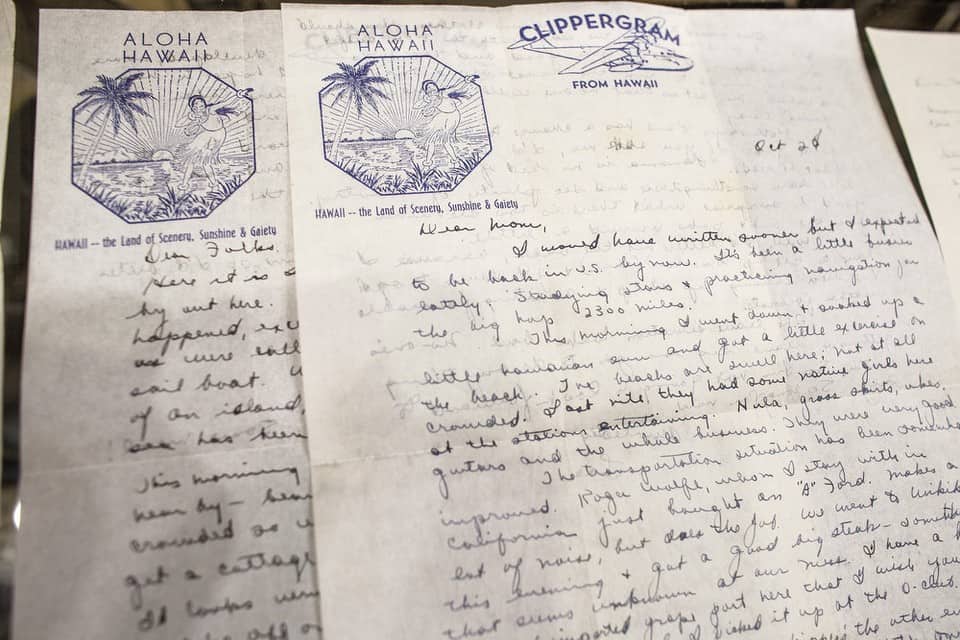 ALOHA
HAWAII
HAWAII -- the Land of Scenery, Sunshine & Gaiety
Dear Folks,
Here it is
by out here.
happened, exc
as were
sail boat.
of an island,
sea has been
This morning
near by —
crowded as
get a cottag
It looks ver
ALOHA
HAWAII
HAWAII -- the Land of Scenery, Sunshine & Gaiety
CLIPPERGRAM
FROM HAWAII
Oct 28
Dear Mom,
I would have written sooner but I expected
to be back in U.S. by now. It's been a little busier
lately, Studying stars & practicing navigation for
the big hop 2300 miles.
This morning I went down & soaked up a
little hawaiian sun and got a little exercise on
the beach. The beachs are swell here; not at all
crowded. Last nite they had some native girls here
at the station entertaining. Hula, grass skirts, ukes,
guitars and the whole business. They were very good
The transportation situation has been somewha
improved. Roger Wolfe, whom I stay with in
California just bought an "A" Ford. Makes a
lot of noise, but does the job. We went to Wikiki
this evening & got a good big steak - someth
that seems unknown at our mess. I have a
imported grape port here that I wish you
I picked it up at the O-club.
the other eve